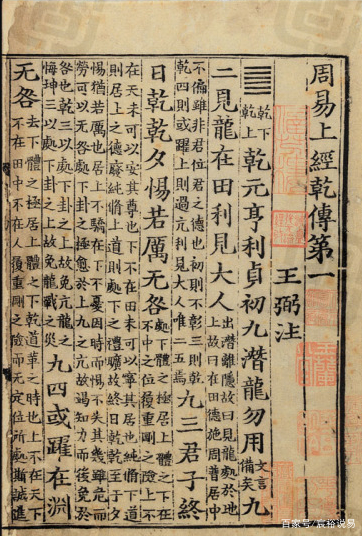 周易上經乾傳第一
王弼注
䷀乾下乾上乾元亨利貞初九潛龍勿用文言備矣九
二見龍在田利見大人出潛離隱故曰見龍處於地上故曰在田德施周普居中
不偏雖非君位君之德也初則不彰三則乾乾四則或躍上則過亢利見大人唯二五焉九三君子終
日乾乾夕惕若厲无咎處下體之極居上體之下在不中之位履重剛之險上不
在天未可以安其尊也下不在田未可以寧其居也純脩下道則居上之德廢純脩上道則處下之禮曠故終日乾乾至于夕
惕猶若厲也居上不驕在下不憂因時而惕不失其幾雖危而勞可以无咎處下卦之極愈於上九之亢故竭知力而後免於
咎也乾三以處下卦之上故免亢龍之悔坤三以處下卦之上故免龍戰之災九四或躍在淵
无咎去下體之極居上體之下乾道革之時也上不在天下不在田中不在人履重剛之險而无定位所處斯誠進
百家号/宸裕说易